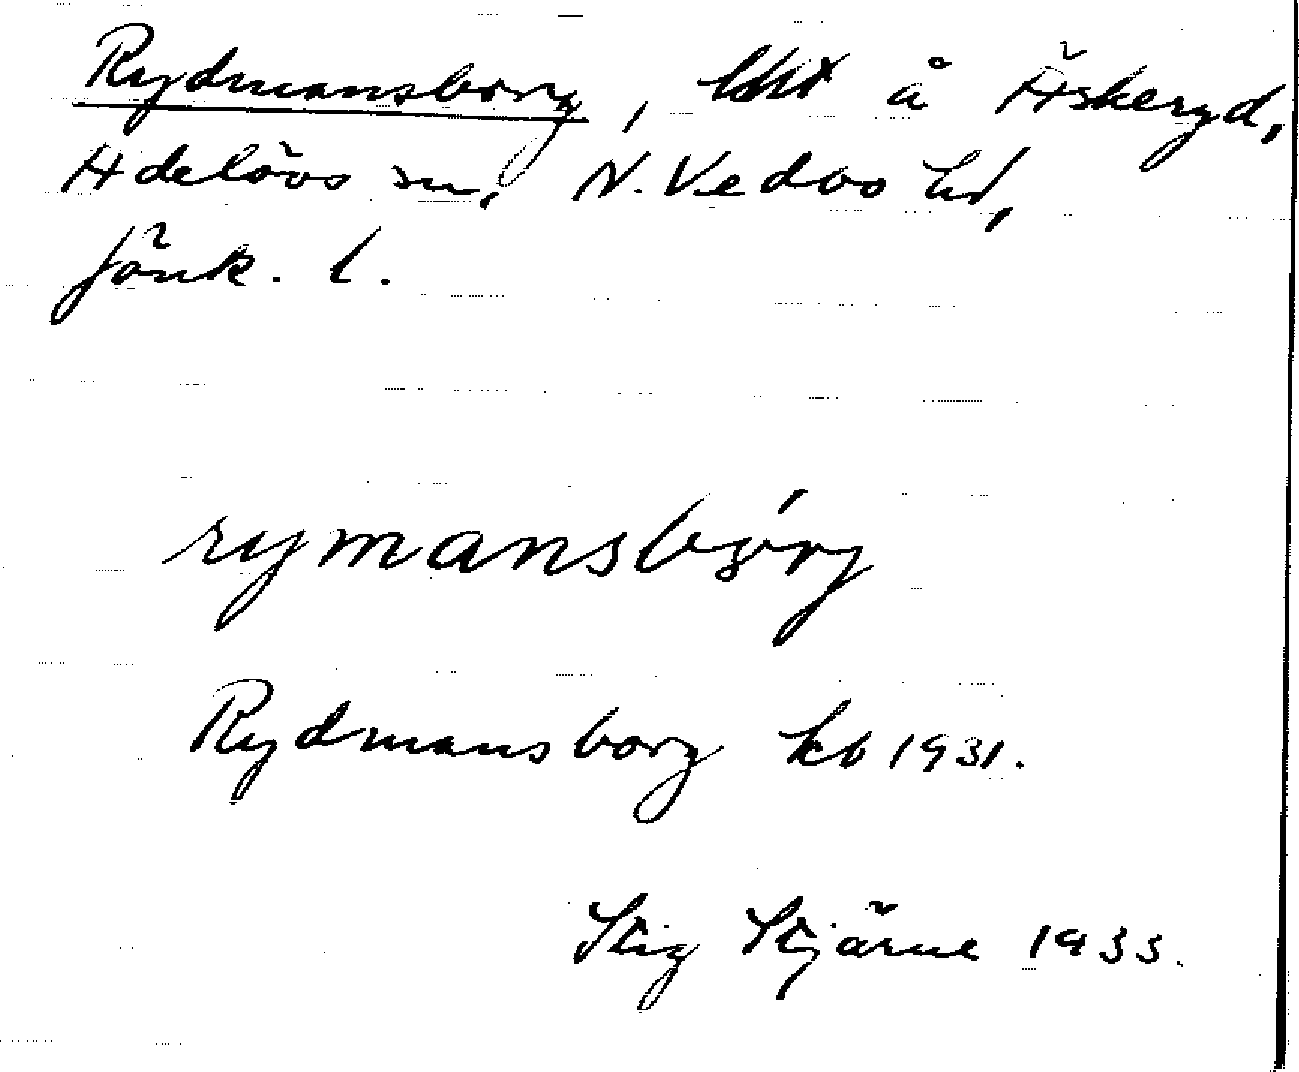 Rydmansborg, lht å Äskeryd,
Adelövs sn, N. Vedbo hd,
Jönk. l.
rymansbórg
Rydmansborg kb 1931.
Stig Stjärne 1933.